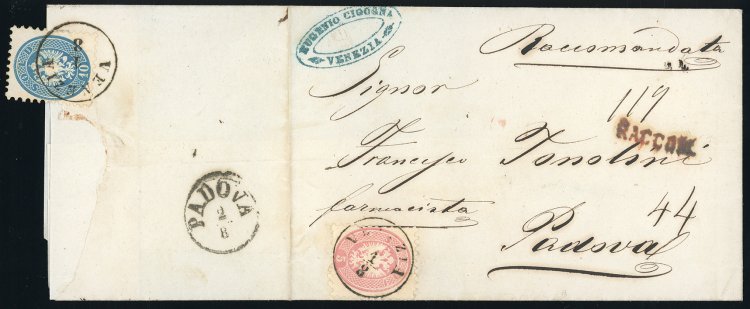 EUGENIO CICOGNA
VENEZIA
Raccomandata
Signor
119
RACCOM.
Francesco Tonolini
farmacista
44
Padova
VENEZIA
1/8
5
PADOVA
2/8
10